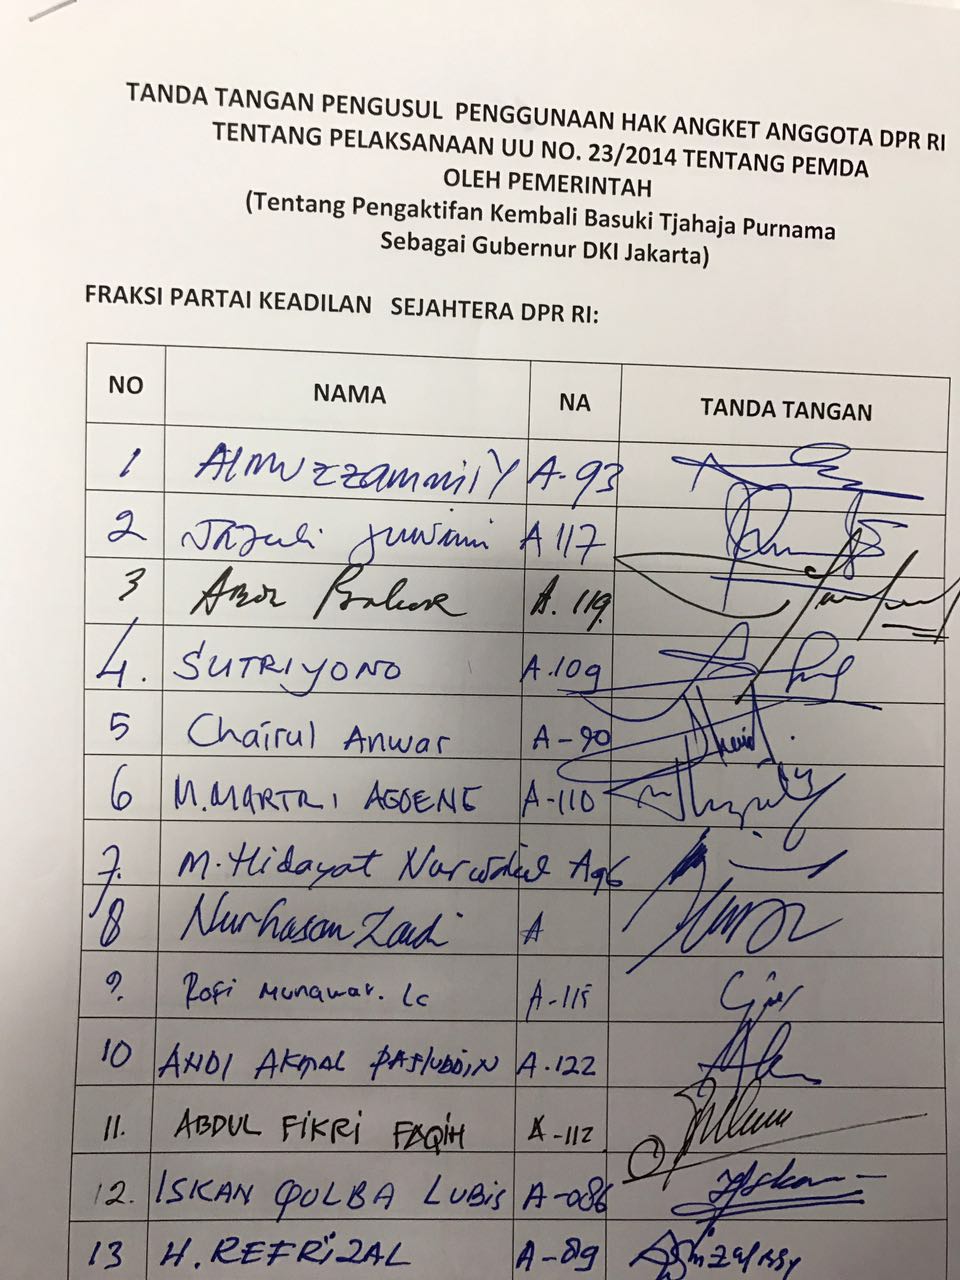 TANDA TANGAN PENGUSUL PENGGUNAAN HAK ANGKET ANGGOTA DPR RI
TENTANG PELAKSANAAN UU NO. 23/2014 TENTANG PEMDA
OLEH PEMERINTAH
(Tentang Pengaktifan Kembali Basuki Tjahaja Purnama
Sebagai Gubernur DKI Jakarta)
FRAKSI PARTAI KEADILAN SEJAHTERA DPR RI:
NO NAMA NA TANDA TANGAN
1 Almuzzammil Y A-93
2 Jazuli Juwaini A 117
3 A. 119
4. SUTRIYONO A.109
5 Chairul Anwar A-90
6 M. MARTRI AGOENG A-110
7. M. Hidayat Nurwahid A96
8 Nurhasan Zaidi A
9. Rofi Munawar. Lc A-115
10 ANDI AKMAL PASLUDDIN A.122
11. ABDUL FIKRI FAQIH A-112
12. ISKAN QOLBA LUBIS A-086
13 H. REFRIZAL A-89